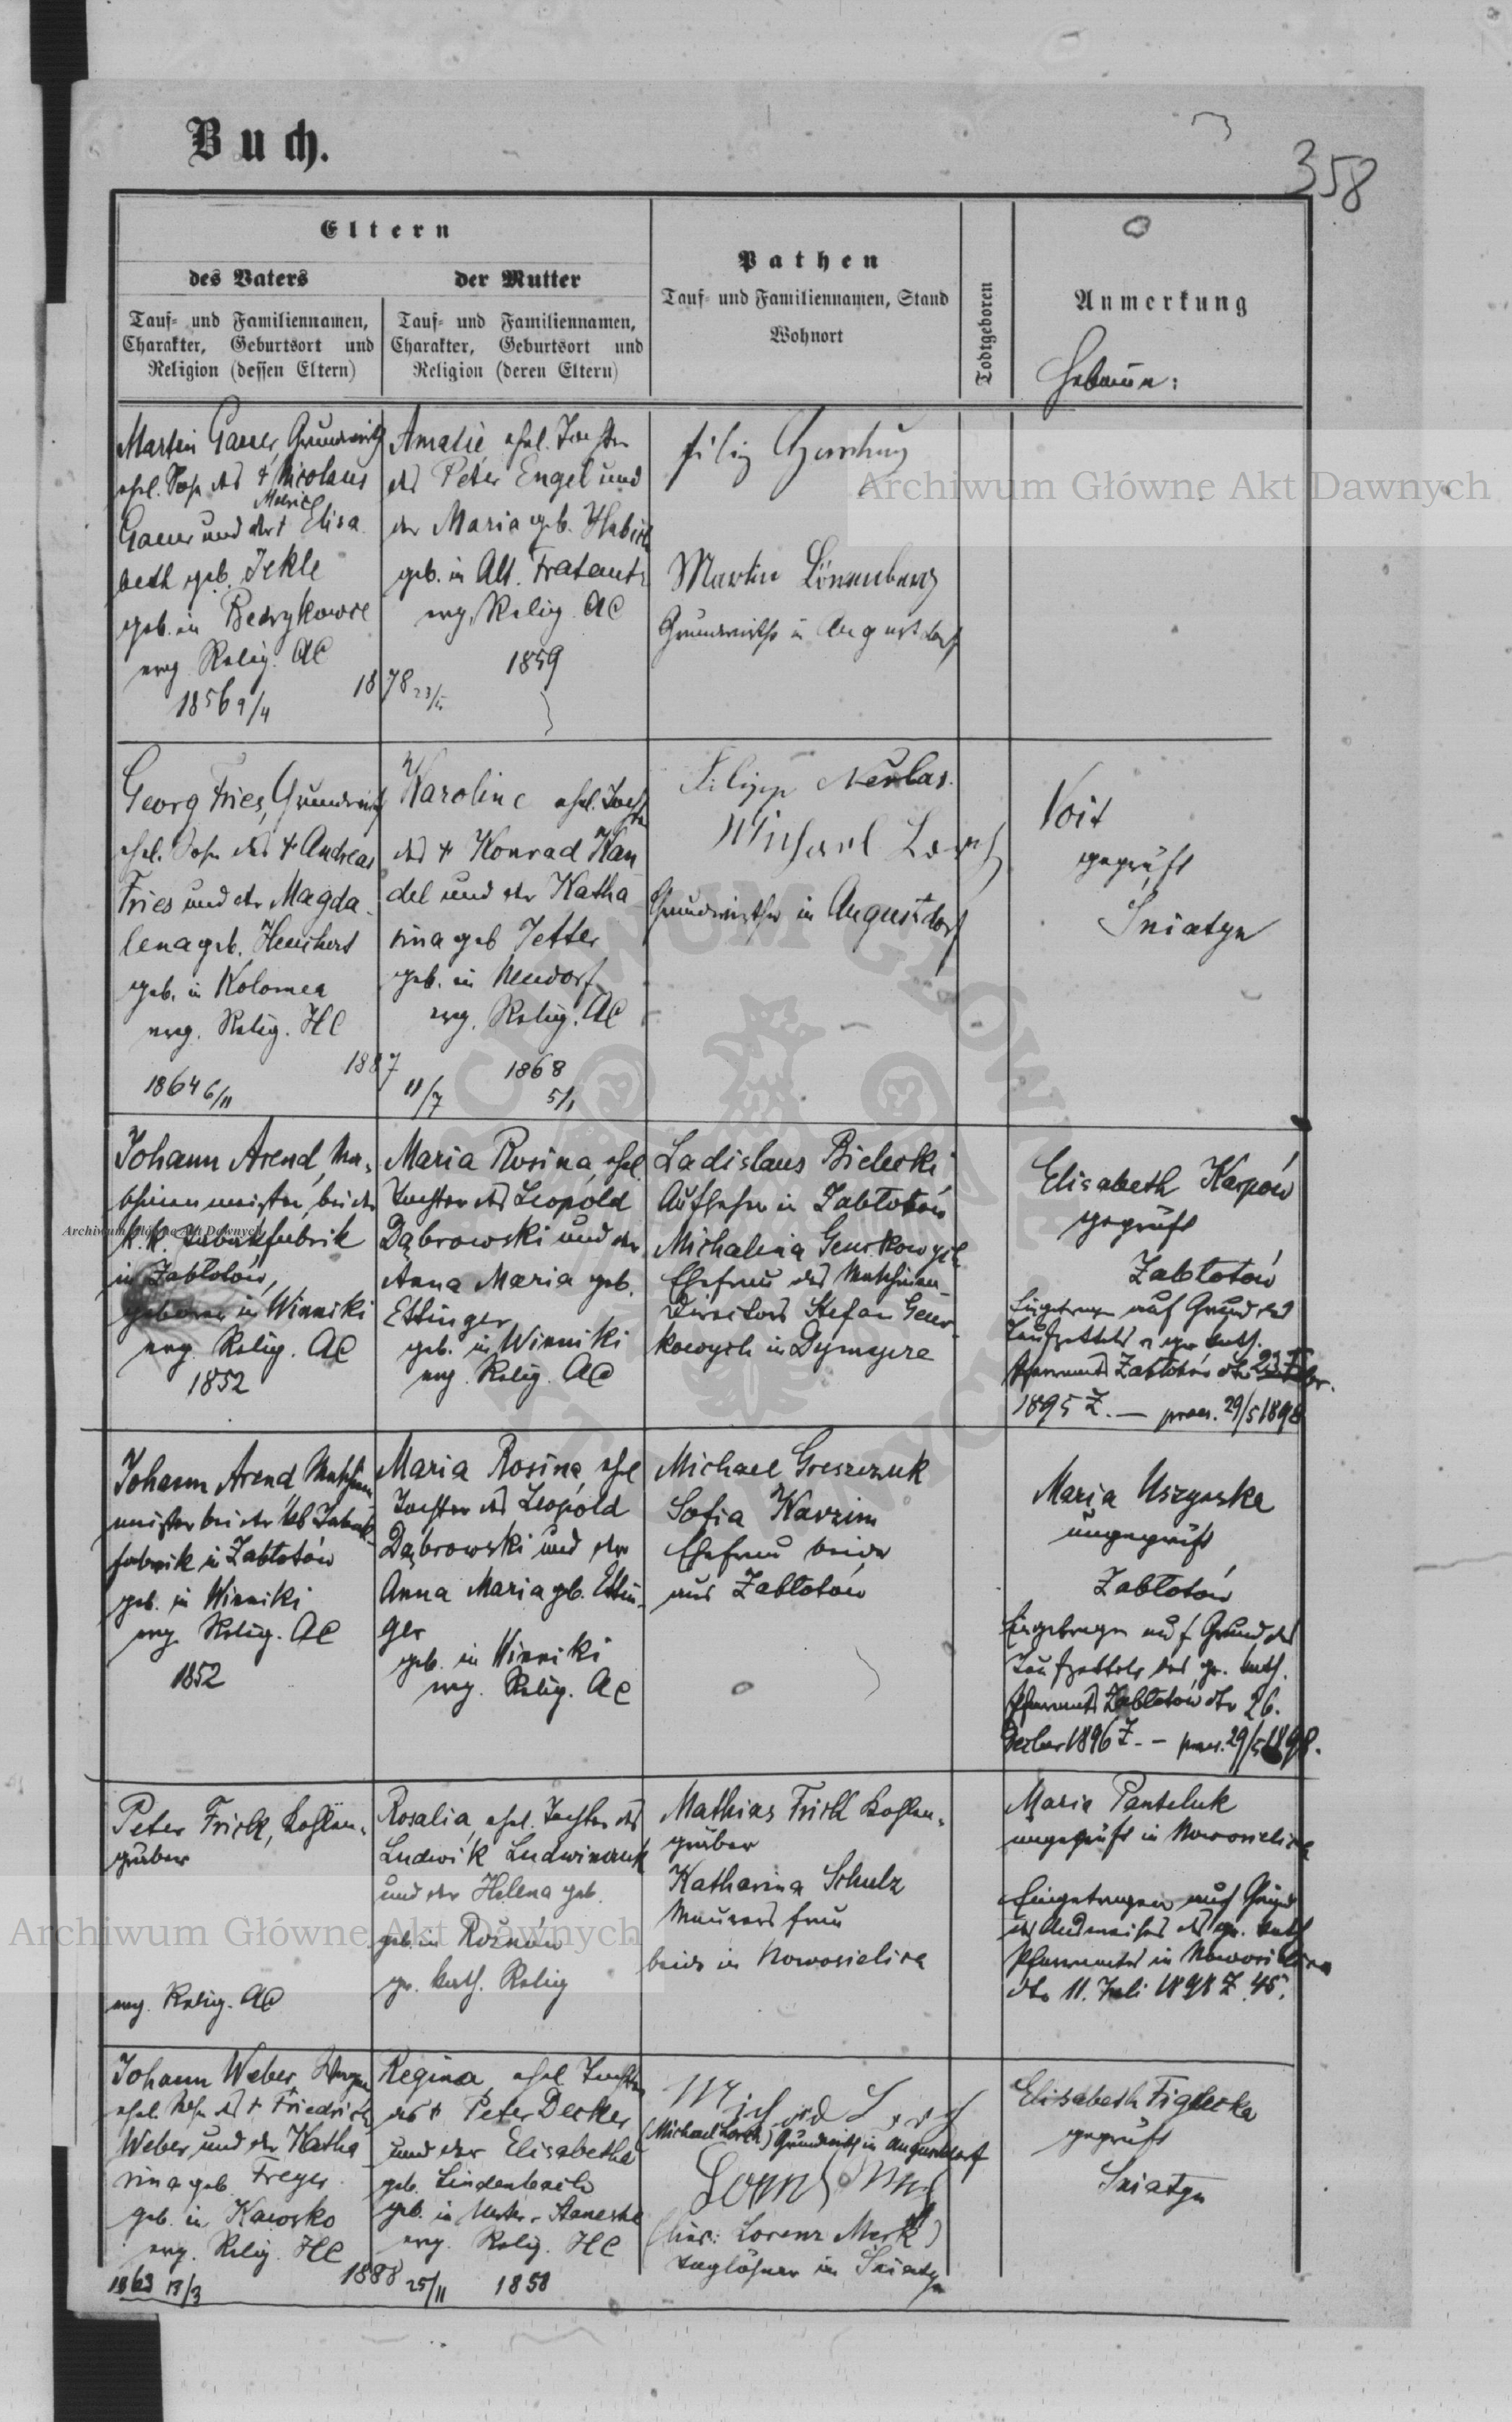 Buch.
358
Eltern
des Vaters
der Mutter
Tauf- und Familiennamen,
Charakter, Geburtsort und
Religion (dessen Eltern)
Tauf- und Familiennamen,
Charakter, Geburtsort und
Religion (deren Eltern)
Pathen
Tauf- und Familiennamen, Stand
Wohnort
Todtgeboren
Anmerkung
Hebamme:
Martin Gauer, Grundwirth
ehel. Sohn des † Nicolaus
Gauer und der † Elisa
beth geb. Jekle
geb. in Bedrykowce
evg. Relig. AC
1856 9/4
1878 23/
Amalie, ehel. Tochter
des Peter Engel und
der Maria geb. Habich
geb. in Alt. Fratautz
evg. Relig. AC
1859
Martin Lönenberg
Grundwirthe in Augustdorf
Georg Fries, Grundwirth
ehel. Sohn des † Andreas
Fries und der Magda
lena geb. Heuchert
geb. in Kolomea
evg. Relig. HC
1864 6/11
1887
11/7
Karoline ehel. Tochter
des † Konrad Kan
del und der Katha
rina geb Jetter
geb. in Neudorf
evg. Relig. AC
1868
5/1
Filipp Neulas.
Michael Lorch
Grundwirthe in Augustdorf
Voit
geprüft
Sniatyn
Johann Arend, Ma-
schinenmeister, bei der
k.k. Tabakfabrik
in Zabłotów,
geboren in Winniki
evg. Relig. AC
1852
Maria Rosina, ehel.
Tochter des Leopold
Dąbrowski und der
Anna Maria geb.
Ettinger
geb. in Winniki
evg. Relig. AC
Ladislaus Bielecki
Aufseher in Zabłotów
Michalina
Ehefrau des Maschinen-
Directors Stefan
Elisabeth Karpów
geprüft
Zabłotów
Eingetragen auf Grund des
Taufzettels gr kath.
Pfarramts Zabłotów dto 23
1895 Z. — praes. 29/5 1898
Johann Arend, Maschinen
meister bei der kk Tabak
fabrik in Zabłotów
geb. in Winniki
evg. Relig. AC
1852
Maria Rosina, ehel
Tochter des Leopold
Dąbrowski und der
Anna Maria geb. Ettin-
ger
geb. in Winniki
evg. Relig. AC
Michael Greszczuk
Sofia Kavzim
Ehefrau beide
aus Zabłotów
Maria Uszynska
ungeprüft
Zabłotów
Eingetragen auf Grund des
Taufzettels des gr. kath.
Pfarramts Zabłotów dto 26.
Dezber 1896 Z. — praes. 29/5 1898.
Peter Frick, Kohlen-
gräber
evg. Relig. AC
Rosalia, ehel. Tochter des
Ludwik
und der Helena geb.
geb. in Rožnów
gr. kath. Relig
Mathias Frick Kohlen-
gräber
Katharina Schulz
Maurers frau
beide in Nowosielica
Maria Panteluk
ungeprüft in Nowosielica
Eingetragen auf Grund
des Ausweises des gr. kath
Pfarramtes in Nowosielica
dto 11. Juli 1898 Z. 45.
Johann Weber,
ehel. Sohn des † Friedrich
Weber und der Katha
rina geb Freyer
geb. in Kawsko
evg. Relig. HC
1863 13/3
1888 25/11
Regina, ehel. Tochter
des † Peter Decker
und der Elisabetha
geb. Lindenbach
geb. in
evg. Relig. HC
1858
Michael Lorch
(Michael Lorch) Grundwirth in Augustdorf
(hier: Lorenz Merk)
Taglöhner in Sniatyn
Elisabeth Figlecka
geprüft
Sniatyn
Archiwum Główne Akt Dawnych
Archiwum Główne Akt Dawnych
Archiwum Główne Akt Dawnych